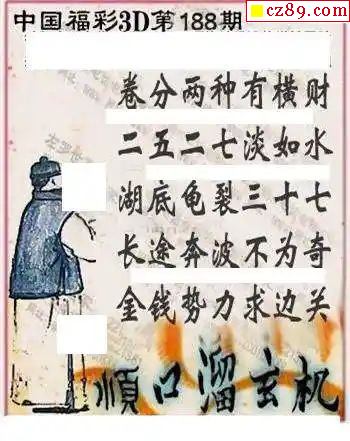 cz89.com
中国福彩3D第188期
卷分两种有横财
二五二七淡如水
湖底龟裂三十七
长途奔波不为奇
金钱势力求边关
順口溜玄机